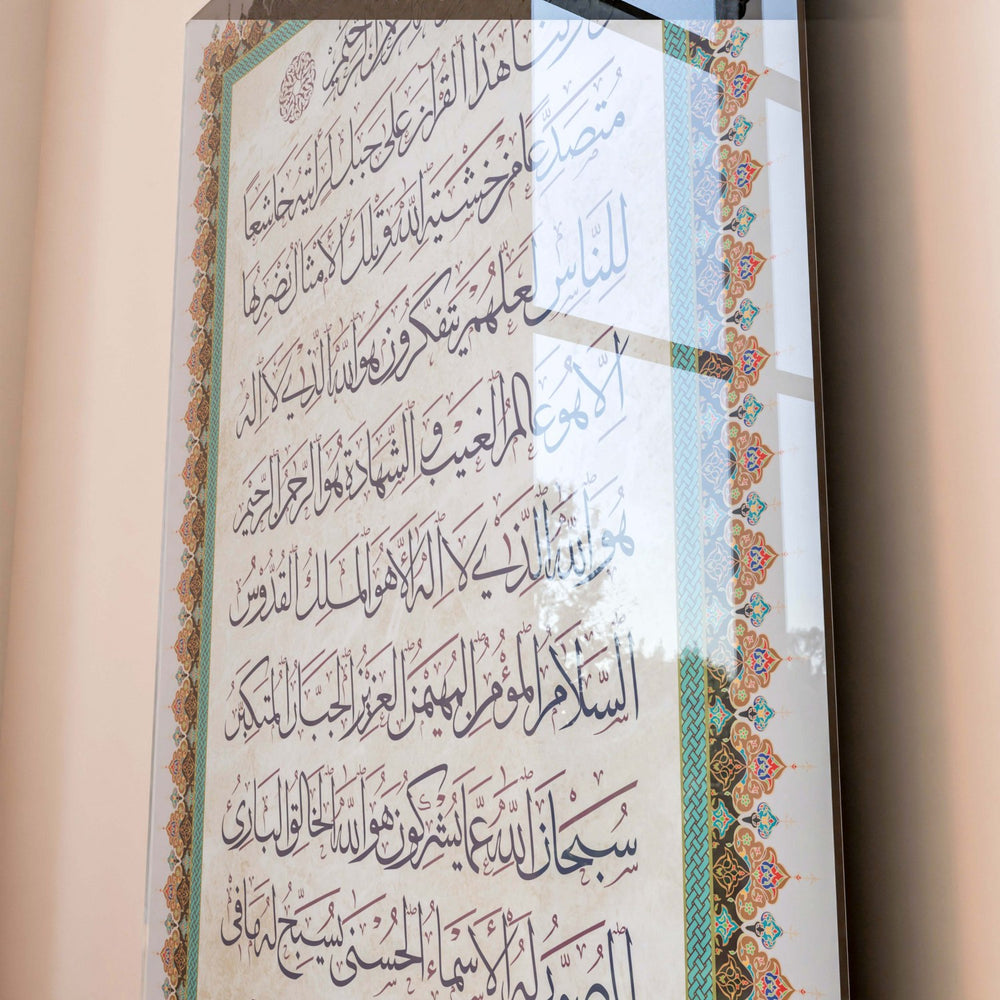 الرحمن الرحيم
لو أنزلنا هذا القرآن على جبل لرأيته خاشعًا
متصدعًا من خشية الله وتلك الأمثال نضربها
للناس لعلهم يتفكرون هو الله الذي لا إله
إلا هو عالم الغيب والشهادة هو الرحمن الرحيم
هو الله الذي لا إله إلا هو الملك القدوس
السلام المؤمن المهيمن العزيز الجبار المتكبر
سبحان الله عما يشركون هو الله الخالق البارئ
المصور له الأسماء الحسنى يسبح له ما في